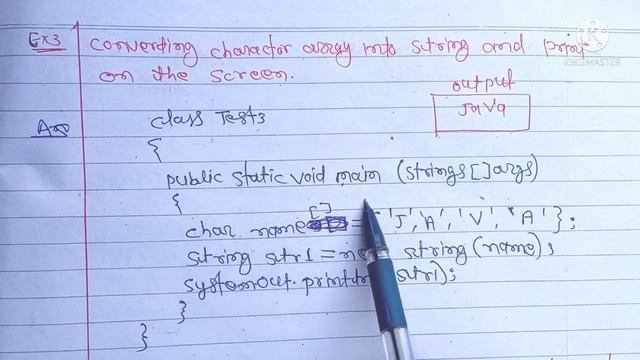 Ex3 converting charactor array into string and print
on the screen.
output
JaVa
Ans class Test3
{
public static void main (strings[]args)
{
char name[] = 'J', 'A', 'V', 'A' };
string str1 = string (name);
system.out. println str1);
}
}
KINEMASTER